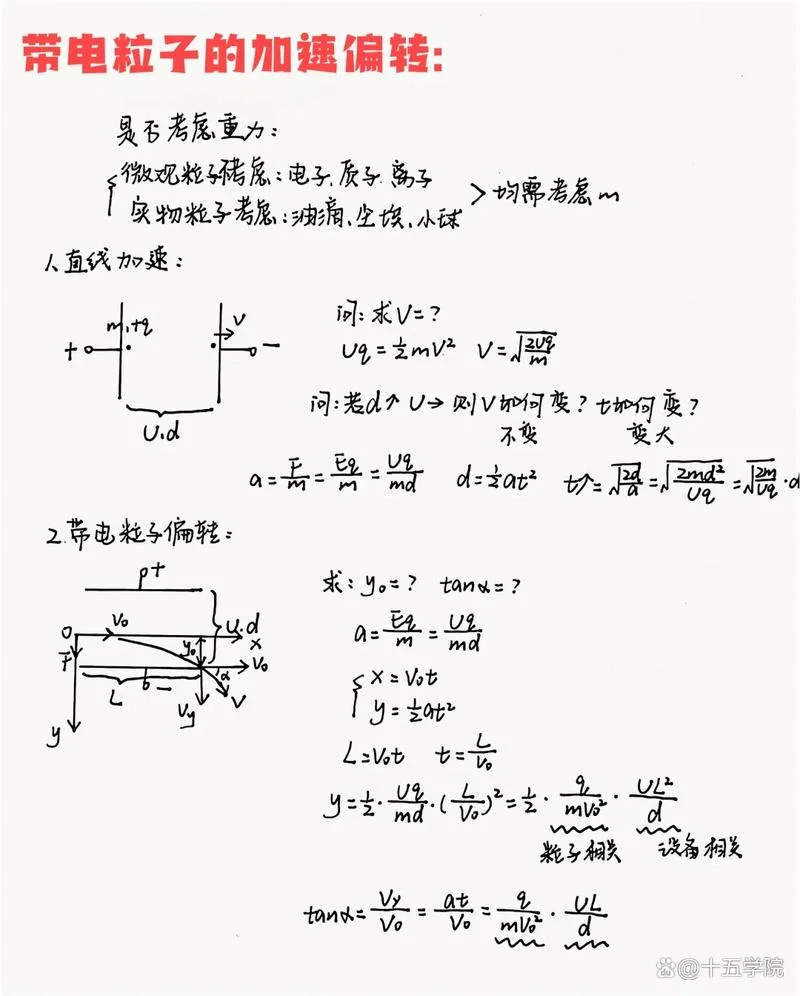 带电粒子的加速偏转:
是否考虑重力:
微观粒子不考虑:电子、质子、离子
实物粒子考虑:油滴、尘埃、小球
> 均需考虑m
1、直线加速:
m,+q
V
+
−
U.d
问:求V=?
Uq=½mV² V=√(2Uq/m)
问:若d↗ U→ 则V如何变?t如何变?
不变 变大
a=F/m=Eq/m=Uq/md d=½at² t↗=√(2d/a)=√(2md²/Uq)=√(2m/Uq)·d
2.带电粒子偏转:
p+
O V₀ y₀ U.d x
F L b − α V₀
y Vy V
求:y₀=? tanα=?
a=Eq/m=Uq/md
x=V₀t
y=½at²
L=V₀t t=L/V₀
y=½·Uq/md·(L/V₀)²=½·q/mV₀²·UL²/d
粒子相关 设备相关
tanα=Vy/V₀=at/V₀=q/mV₀²·UL/d
@十五学院